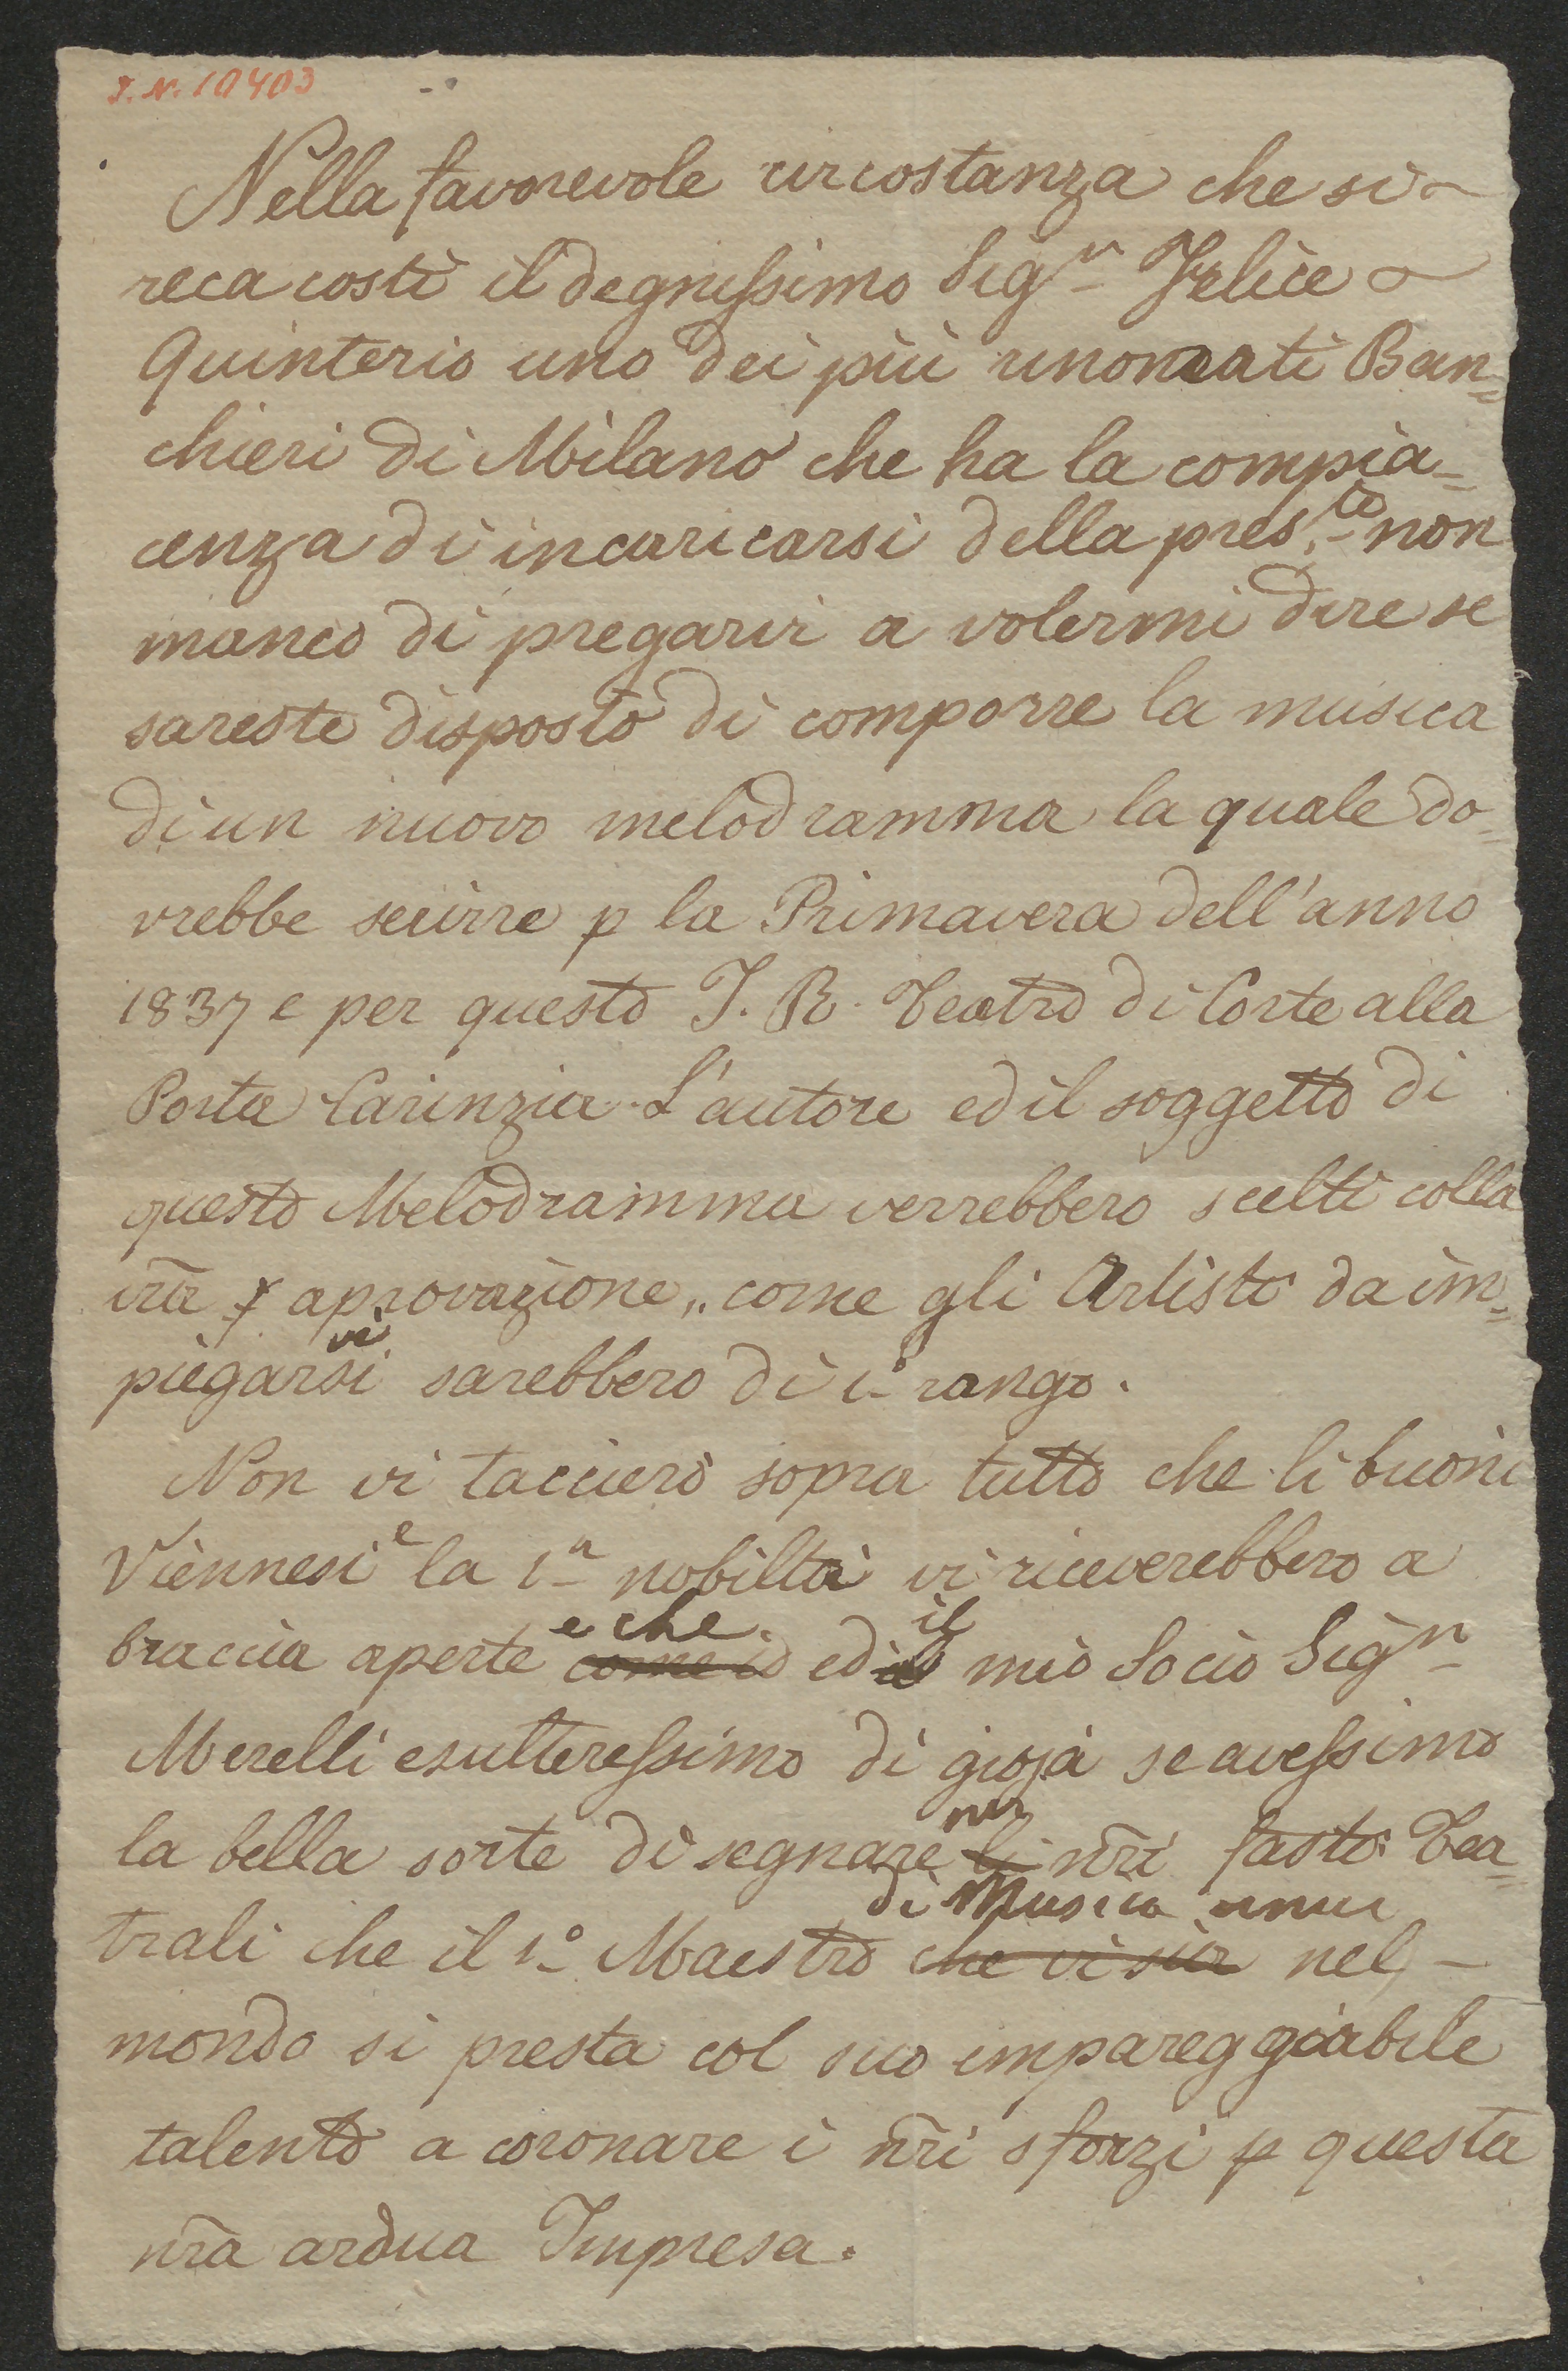 I.N. 10403
Nella favorevole circostanza che si
reca costì il degnissimo Sigr Felice
Quinterio uno dei più rinomati Ban=
chieri di Milano che ha la compia=
cenza di incaricarsi della pres.te non
manco di pregarvi a volermi dire se
sareste disposto di comporre la musica
di un nuovo melodramma la quale do=
vrebbe servire p la Primavera dell'anno
1837 e per questo I. R. Teatro di Corte alla
Porta Carinzia. L'autore ed il soggetto di
questo Melodramma verrebbero scelti colla
vra aprovazione,, come gli Artisti da im=
vi
piegarsi sarebbero di 1o rango.
Non vi taccierò sopra tutto che li buoni
Viennesi e la 1a nobiltà vi riceverebbero a
e che il
braccia aperte come io ed mio Socio Sigr
Merelli esulteressimo di gioja se avessimo
la bella sorte di segnare li nri fasti Tea=
di Musica
trali che il 1o Maestro che vi sia nel
mondo si presta col suo impareggiabile
talento a coronare i nri sforzi p questa
nra ardua Impresa.